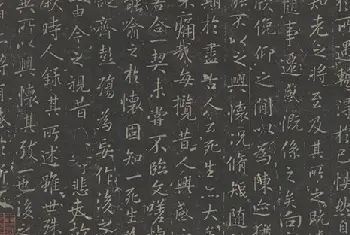 於己怏然自
知老之將至及其所之既
隨事遷感慨係之矣向
欣俛仰之間以為陳迹
不以之興懷況脩短隨
期於盡古人云死生亦大
不痛哉每攬昔人興感
合一契未嘗不臨文嗟
能喻之於懷固知一死生
誕齊彭殤為妄作後之
由今之視昔悲夫故
叙時人錄其所述雖世殊
異所以興懷其致一也後之
將有